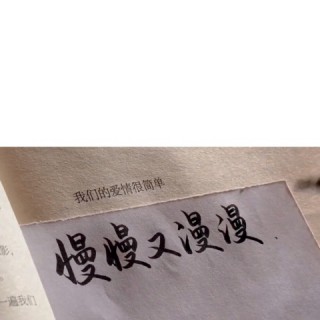 我们的爱情很简单
慢慢又漫漫
影,
一遍我们